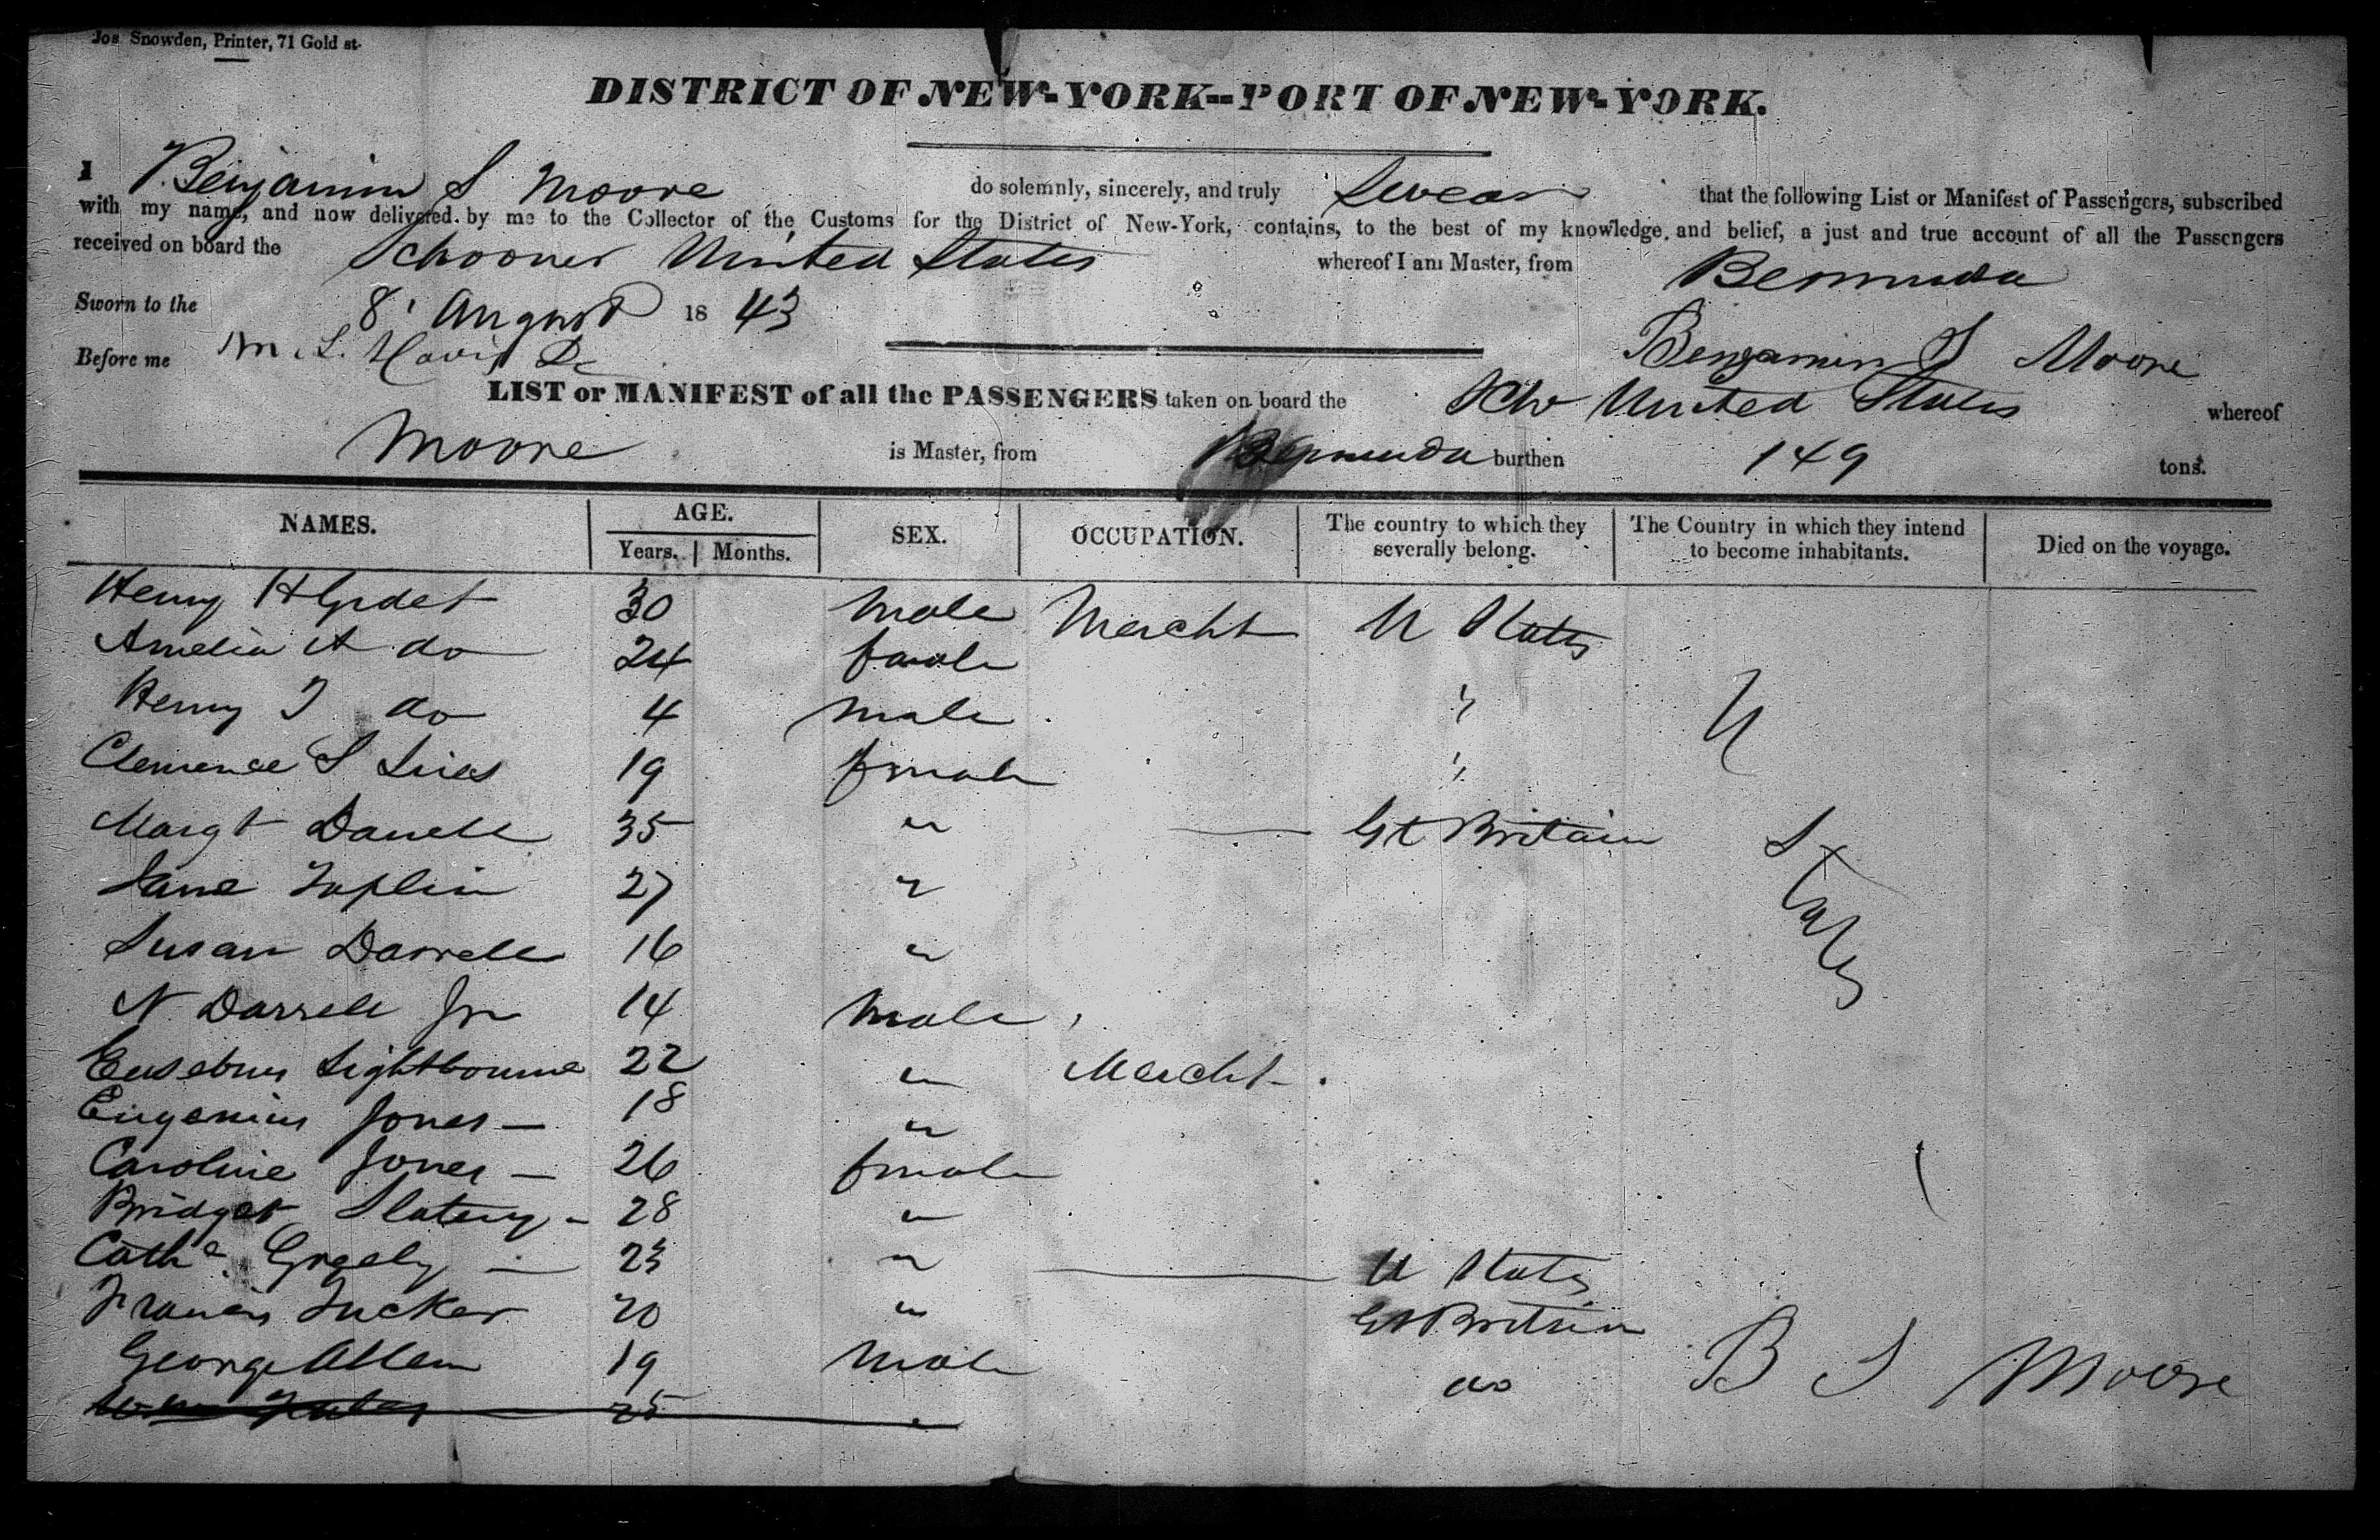 Jos Snowden, Printer, 71 Gold st.
DISTRICT OF NEW-YORK--PORT OF NEW-YORK.
I Benjamin S Moore do solemnly, sincerely, and truly Swear that the following List or Manifest of Passengers, subscribed
with my name, and now delivered by me to the Collector of the Customs for the District of New-York, contains, to the best of my knowledge and belief, a just and true account of all the Passengers
received on board the Schooner United States whereof I am Master, from Bermuda
Sworn to the 8 August 1843
Before me
Benjamin S Moore
LIST or MANIFEST of all the PASSENGERS taken on board the Schr United States whereof
Moore is Master, from Bermuda burthen 149 tons.
NAMES. AGE. Years. Months. SEX. OCCUPATION. The country to which they severally belong. The Country in which they intend to become inhabitants. Died on the voyage.
Henry H 30 male Mercht U States
Amelia A do 24 female
Henry J do 4 male "
Clemence S 19 female "
Margt Darrell 35 " Gt Britain
Jane Taplin 27 "
Susan Darrell 16 "
N Darrell Jr 14 male
Eusebius Lightbourne 22 " Mercht
Eugenius Jones 18 "
Caroline Jones 26 female
Bridget Slatery 28 "
Cathe 23 " U States
Francis Tucker 20 " Gt Britain
George Allen 19 male do
25
U States
B S Moore